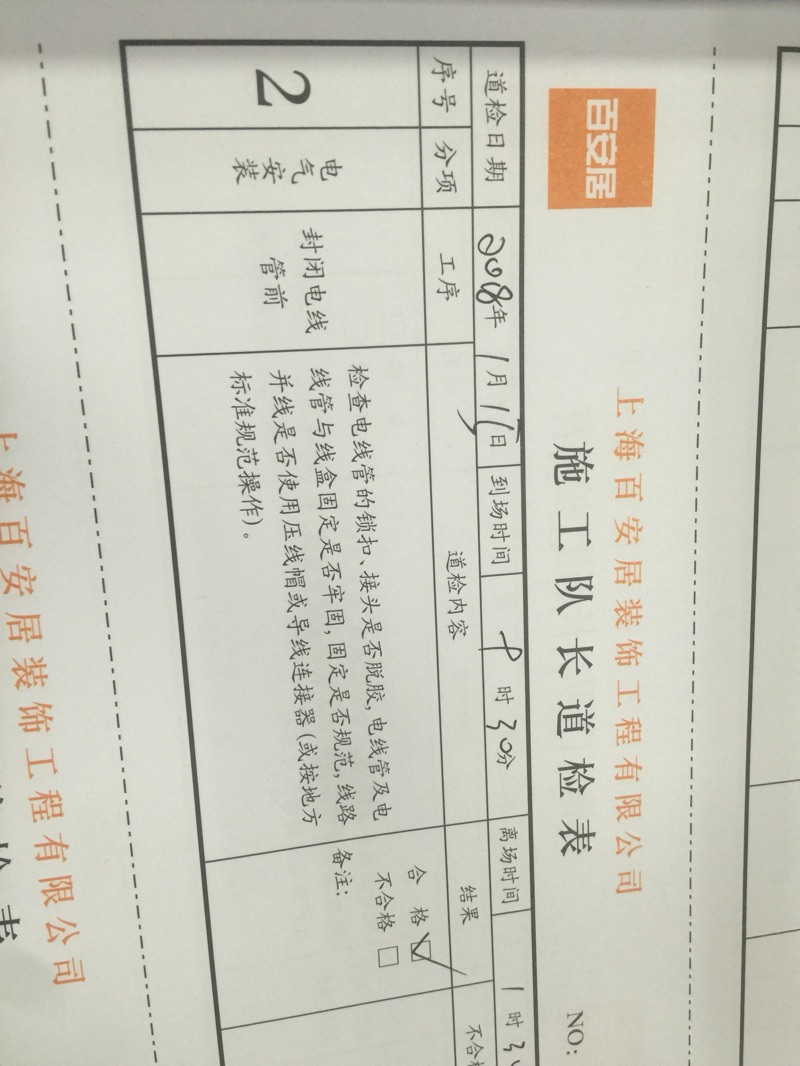 百安居
上海百安居装饰工程有限公司
施工队长道检表
NO:
道检日期 2018年 1月15日 到场时间 9时30分 离场时间 1时3
序号 分项 工序 道检内容 结果 不合格
2 电气安装 封闭电线管前
检查电线管的锁扣、接头是否脱胶,电线管及电
线管与线盒固定是否牢固,固定是否规范,线路
并线是否使用压线帽或导线连接器(或按地方
标准规范操作)。
合格 ☑
不合格 □
备注:
上海百安居装饰工程有限公司
检表